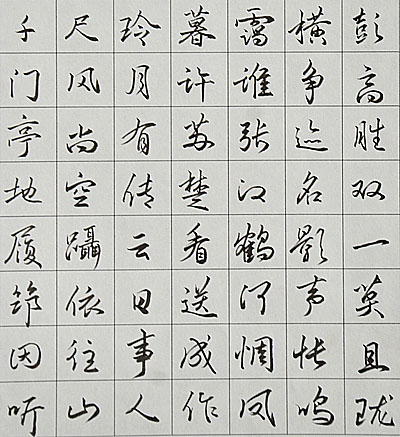 千尺玲暮霭横彭
门风月许谁争高
亭尚有苏张迹胜
地空传楚汉名双
履蹑云看鹤影一
筇依日送河声莫
因往事成惆怅且
听山人作凤鸣珑